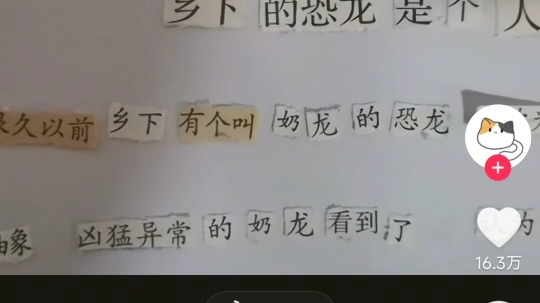 乡下的恐龙是个人
很久以前乡下有个叫奶龙的恐龙
抽象 凶猛异常的奶龙看到了 的
16.3万